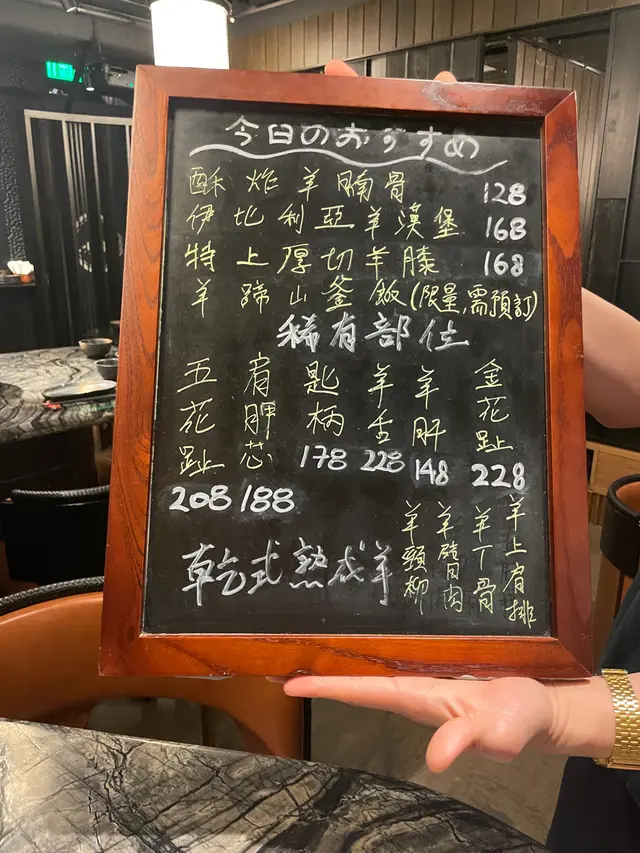 今日のおすすめ
酥炸羊腩骨 128
伊比利亞羊漢堡 168
特上厚切羊膝 168
羊蹄山釜飯(限量,需預訂)
稀有部位
五花趾 208
肩胛芯 188
匙柄 178
羊舌 228
羊肝 148
金花趾 228
乾式熟成羊
羊頸柳
羊臀肉
羊丁骨
羊上肩排